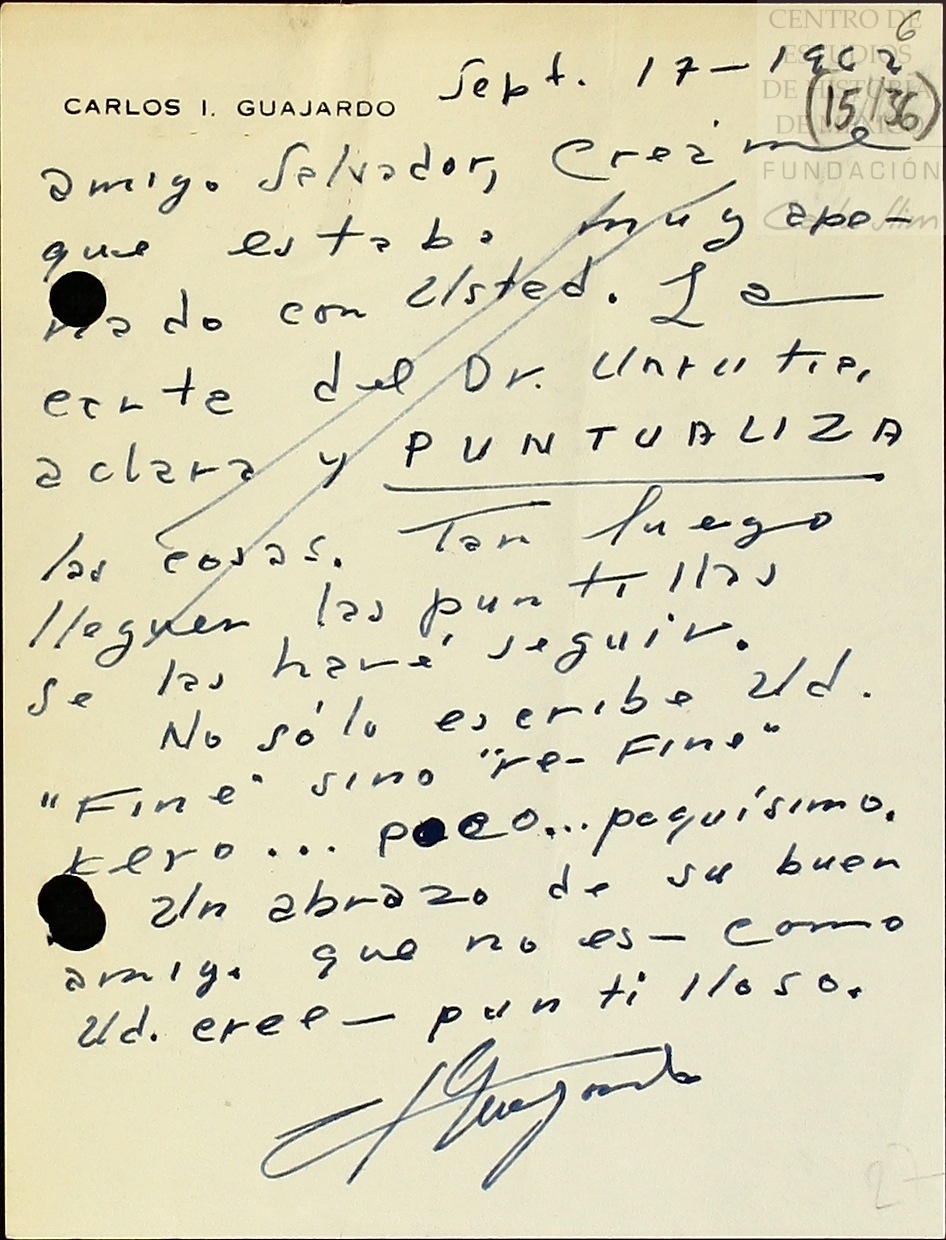 CENTRO DE
ESTUDIOS
DE HISTORIA
DE MÉXICO
FUNDACIÓN
Carlos Slim
6
(15/36)
Sept. 17-1962
CARLOS I. GUAJARDO
amigo Salvador, Creáme
que estaba muy ape-
nado con Usted. La
carta del Dr. Urrutia,
aclara y PUNTUALIZA
las cosas. Tan luego
lleguen las puntillas
se las haré seguir.
No sólo escribe Ud.
"Fine" sino "re-Fine"
kero... poco... poquísimo.
Un abrazo de su buen
amigo que no es - como
Ud. cree - puntilloso.
Guajardo
27